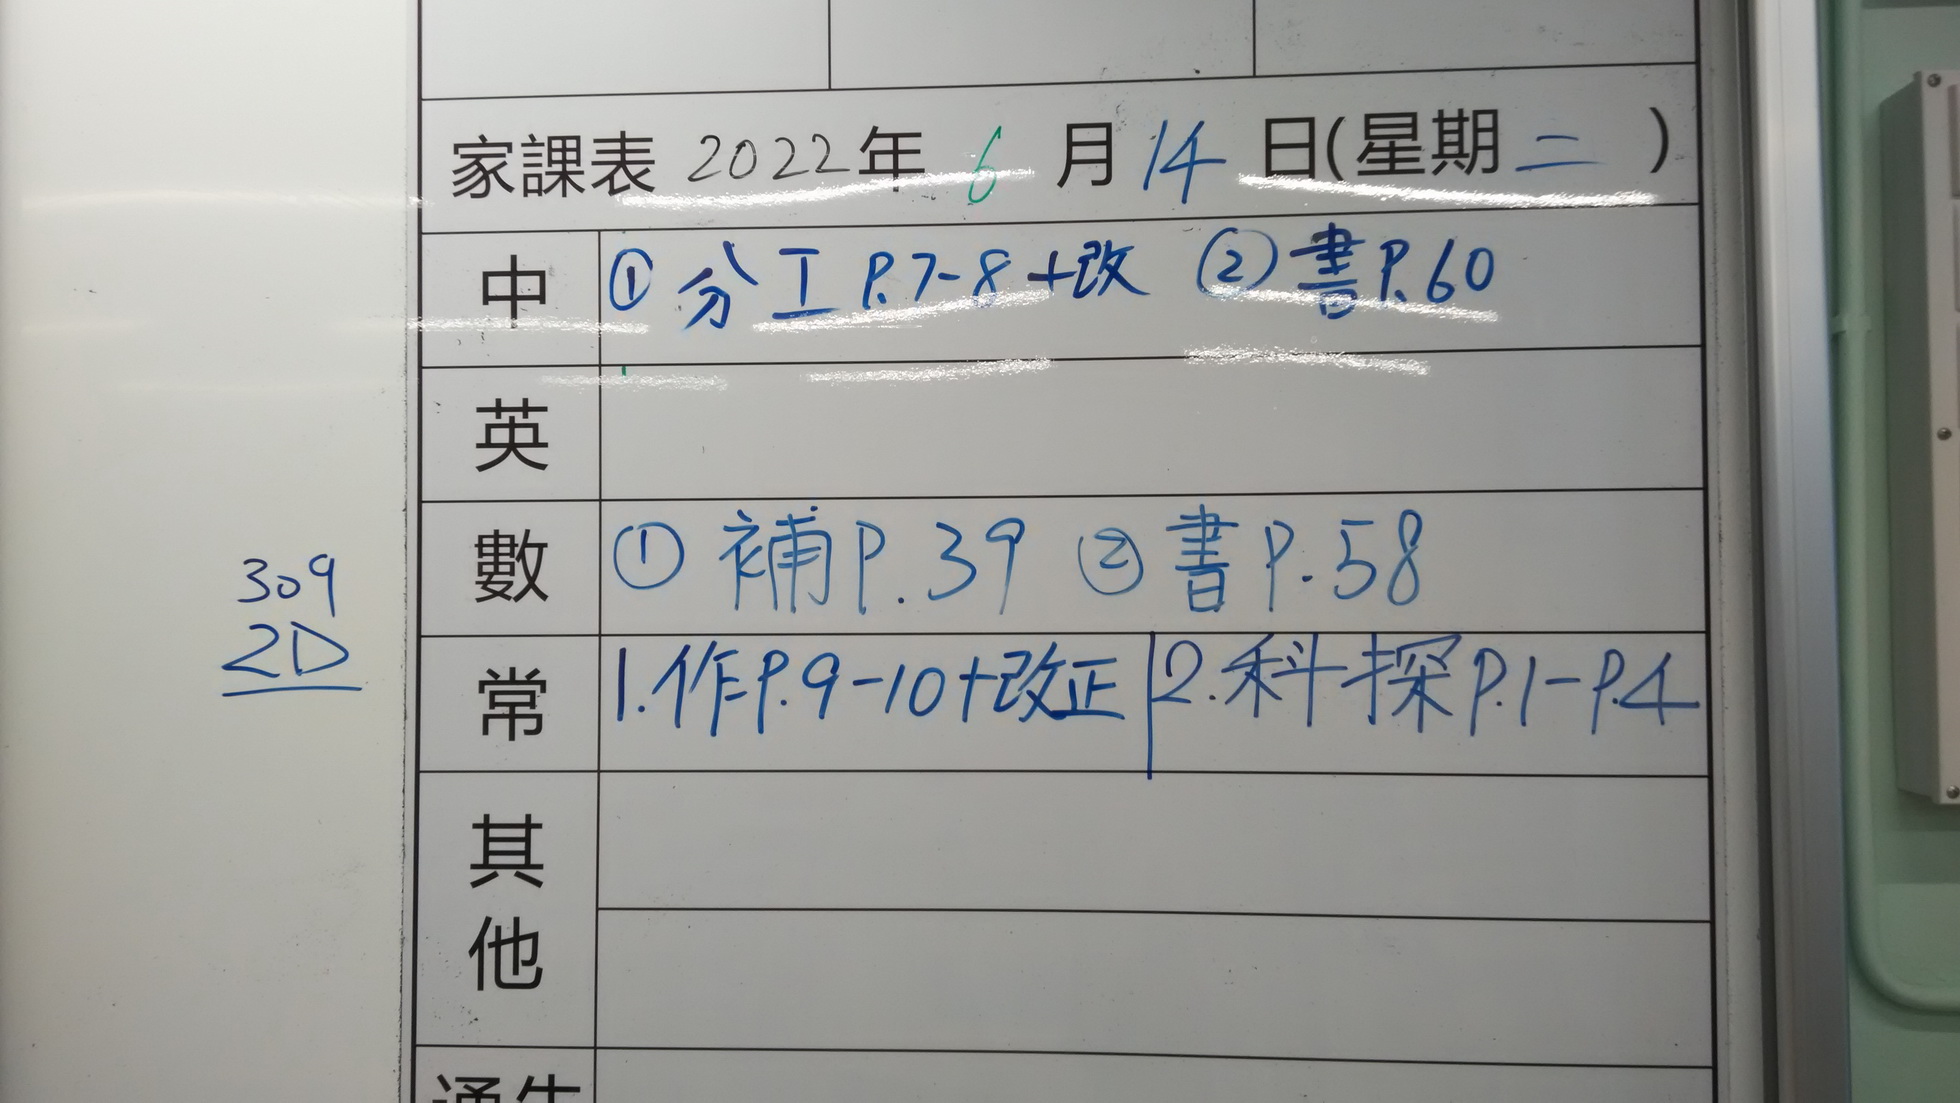 家課表 2022年 6 月 14 日(星期二 )
中 ① 分工 P.7-8 +改 ② 書 P.60
英
數 ① 補 P.39 ② 書 P.58
309
2D
常 1.作P.9-10+改正 2.科探P.1-P.4
其他